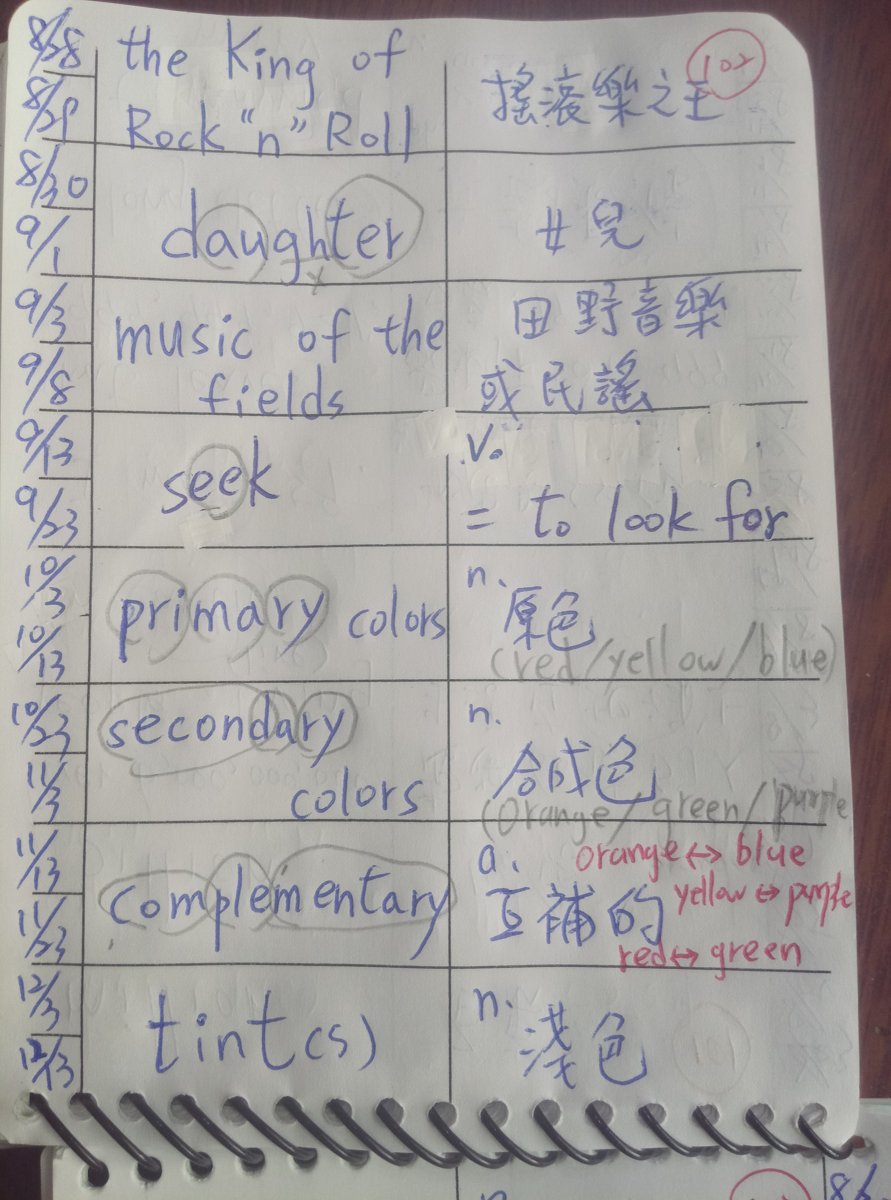 102
8/28
the King of
8/29
Rock "n" Roll
搖滾樂之王
8/30
9/1
daughter
女兒
9/3
9/8
music of the
fields
田野音樂
或民謠
9/13
9/23
seek
v.
= to look for
10/3
10/13
primary colors
n.
原色
(red/yellow/blue)
10/23
11/3
secondary
colors
n.
合成色
(orange/green/purple
11/13
11/23
complementary
a.
互補的
orange↔blue
yellow↔purple
red↔green
12/3
12/13
tint(s)
n.
淺色
101